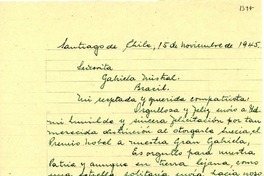 Santiago de Chile, 15 de noviembre de 1945.
Señorita
Gabriela Mistral.
Brasil.
Mi respetada y querida compatriota:
Orgullosa y feliz envío a Ud
mi humilde y sincera felicitación por tan
merecida distinción al otorgarle Suecia, el
Premio Nobel a nuestra Gran Gabriela,
Es orgullo para nuestra
Patria y aunque en tierra lejana, como
una estrella solitaria envía hacia noso